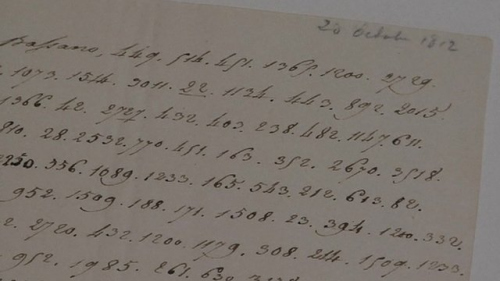 20 octob 1812
Bassano, 449. 514. 451. 1365. 1200. 2729.
1073. 1514. 3011. 22. 1134. 443. 892. 2015.
1366. 42. 2727. 432. 403. 238. 482. 1147. 611.
28. 2532. 770. 451. 163. 352. 2670. 3518.
356. 1089. 1233. 165. 543. 212. 613. 82.
952. 1509. 188. 171. 1508. 23. 394. 1200. 332.
2720. 432. 1200. 1179. 308. 214. 1509. 1233.
952. 1985. 261.